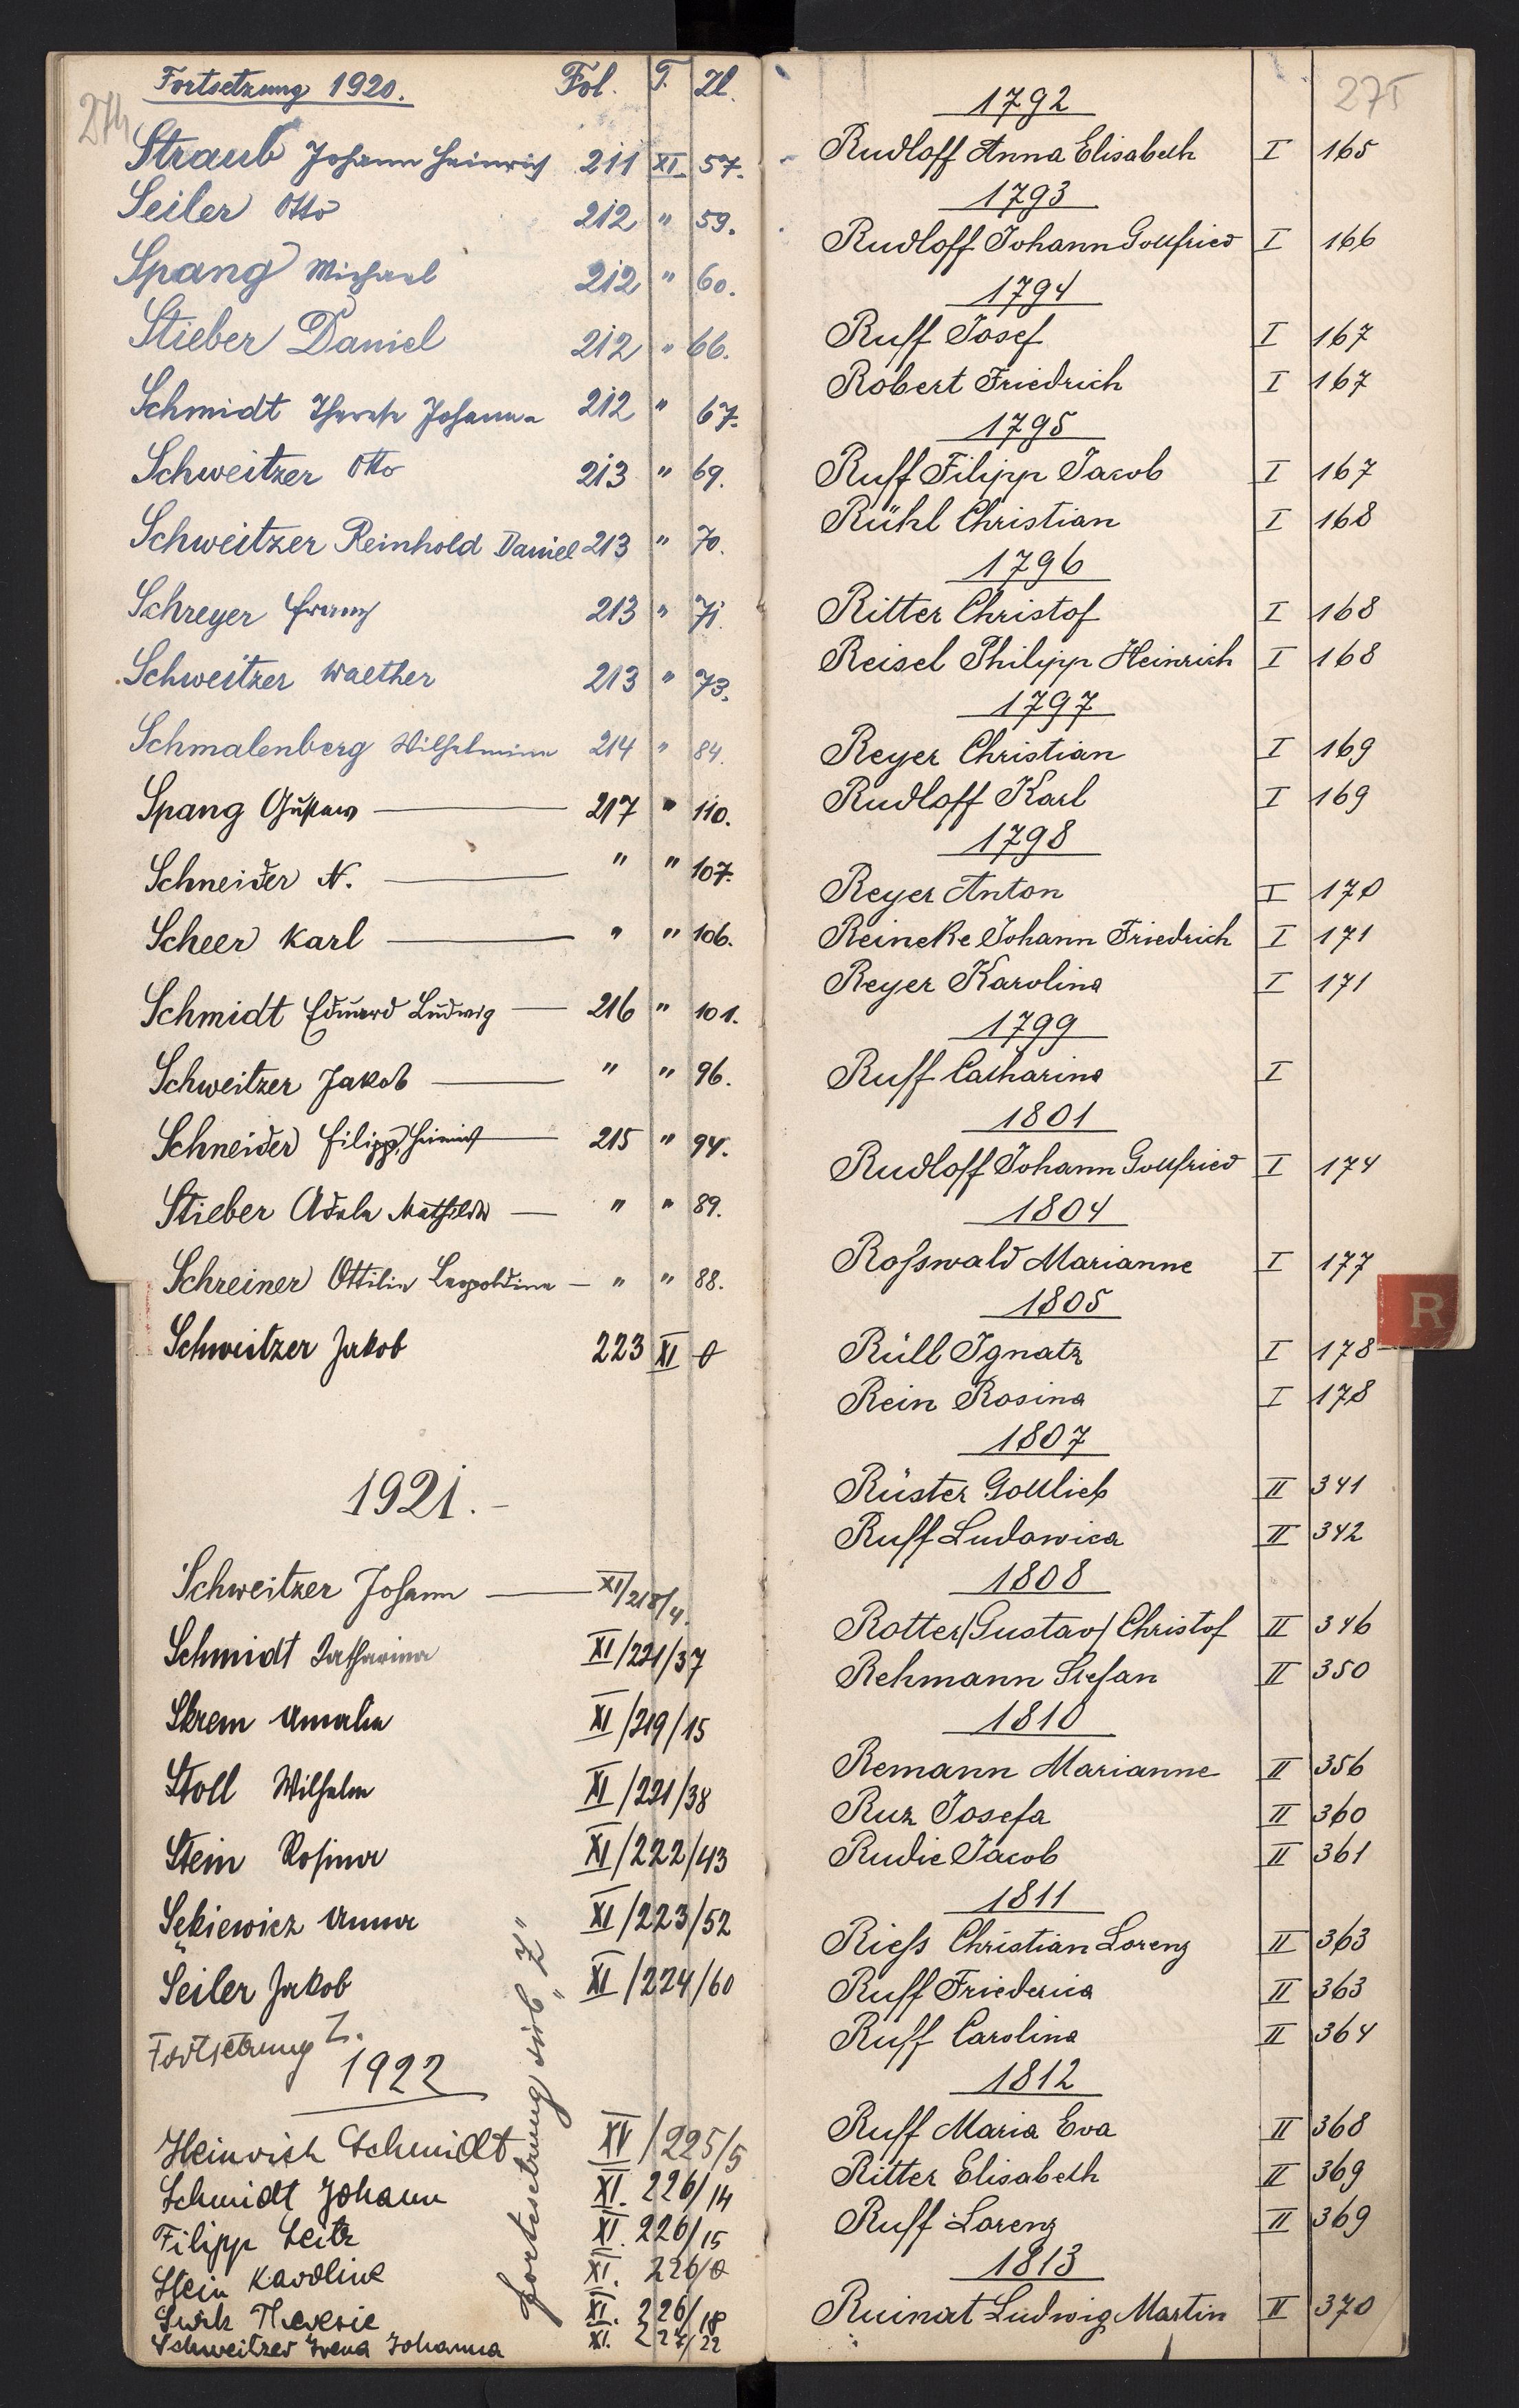 274
Fortsetzung 1920. Fol. T. Zl.
Straub Johann Heinrich 211 XI 57.
Seiler Otto 212 " 59.
Spang Michael 212 " 60.
Stieber Daniel 212 " 66.
Schmidt Therese Johanna 212 " 67.
Schweitzer Otto 213 " 69.
Schweitzer Reinhold Daniel 213 " 70.
Schreyer Franz 213 " 71.
Schweitzer Walther 213 " 73.
Schmalenberg Wilhelmine 214 " 84.
Spang Gustav — 217 " 110.
Schneider N. — " " 107.
Scheer Karl — " " 106.
Schmidt Eduard Ludwig — 216 " 101.
Schweitzer Jakob — " " 96.
Schneider Filipp Heinrich — 215 " 94.
Stieber Adele Mathilde — " " 89.
Schreiner Ottilie Leopoldine — " " 88.
Schweitzer Jakob 223 XI 0
1921. -
Schweitzer Johann — XI/218/4.
Schmidt Katharina XI/221/37
Skrem Amalia XI/219/15
Stoll Wilhelm XI/221/38
Stein Rosina XI/222/43
Sękiewicz Anna XI/223/52
Seiler Jakob XI/224/60
Fortsetzung Z.
1922
Heinrich Schmidt XV/225/5
Schmidt Johann XI. 226/14
Filipp Seitz XI. 226/15
Stein Karoline XI. 226/0
Theresie XI. 226/18
Schweitzer Irena Johanna XI. 227/22
Fortsetzung sub „Z"
275
1792
Rudloff Anna Elisabeth I 165
1793
Rudloff Johann Gottfried I 166
1794
Ruff Josef I 167
Robert Friedrich I 167
1795
Ruff Filipp Jacob I 167
Rühl Christian I 168
1796
Ritter Christof I 168
Reisel Philipp Heinrich I 168
1797
Reyer Christian I 169
Rudloff Karl I 169
1798
Reyer Anton I 170
Reineke Johann Friedrich I 171
Reyer Karolina I 171
1799
Ruff Catharina I
1801
Rudloff Johann Gottfried I 174
1804
Roßwald Marianne I 177
1805
R
Rüll Ignatz I 178
Rein Rosina I 178
1807
Rüster Gottlieb II 341
Ruff Ludowica II 342
1808
Rotter/Gustav/Christof II 346
Rehmann Stefan II 350
1810
Remann Marianne II 356
Ruz Josefa II 360
Rudie Jacob II 361
1811
Rieß Christian Lorenz II 363
Ruff Friederica II 363
Ruff Carolina II 364
1812
Ruff Maria Eva II 368
Ritter Elisabeth II 369
Ruff Lorenz II 369
1813
Ruinat Ludwig Martin II 370